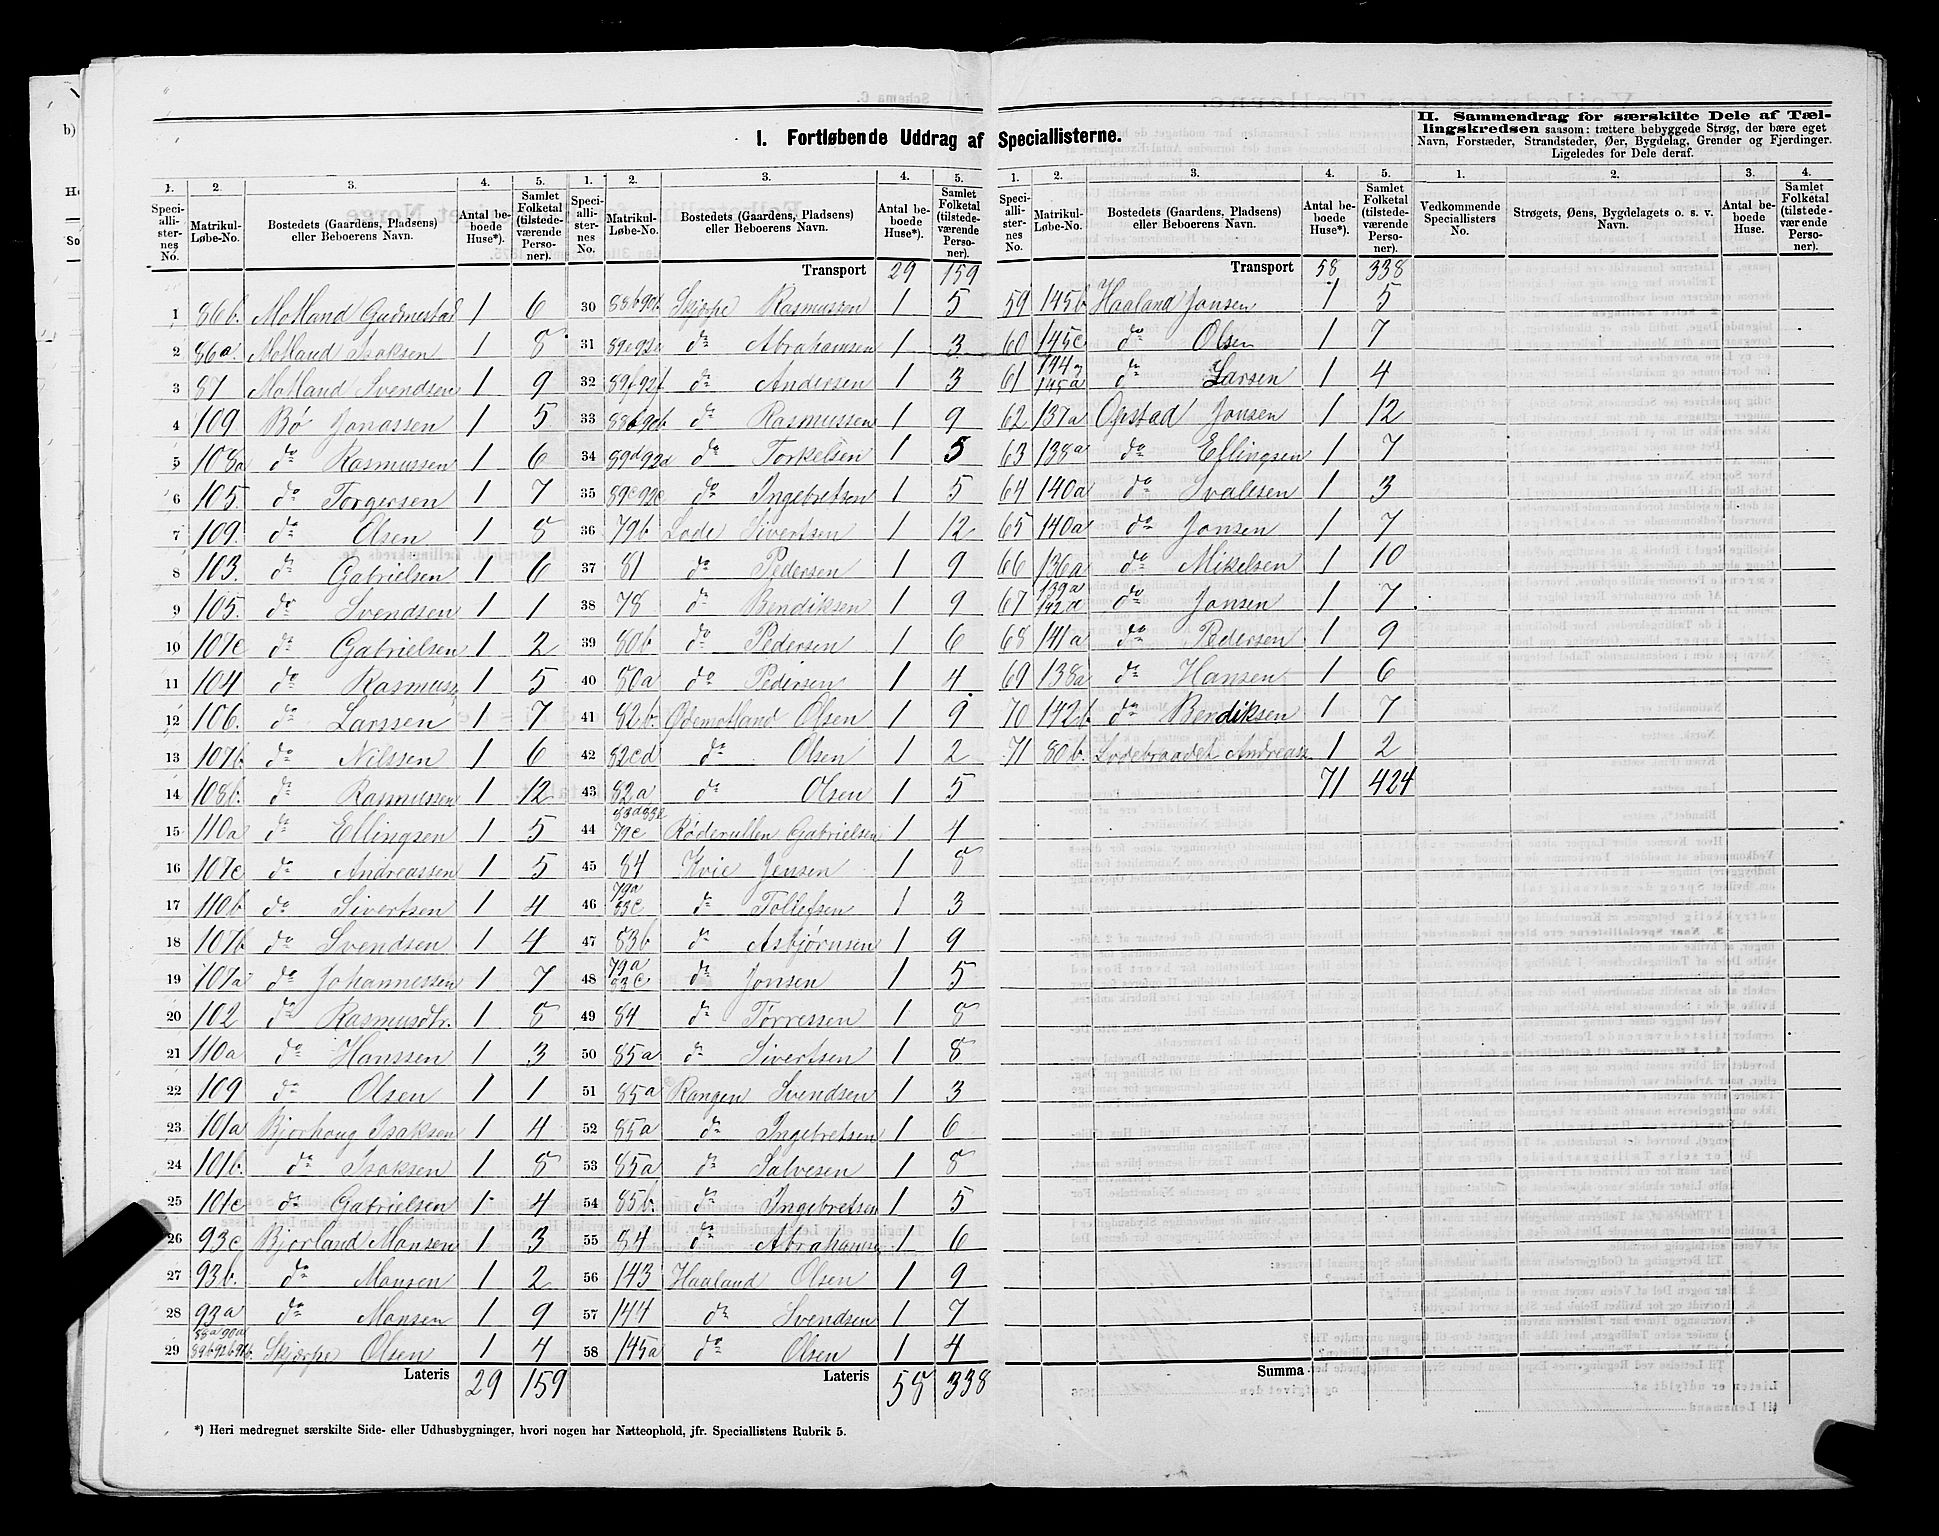 I. Fortløbende Uddrag af Speciallisterne.
1. 2. 3. 4. 5.
Speciallisternes No. Matrikul-Løbe-No. Bostedets (Gaardens, Pladsens) eller Beboerens Navn. Antal beboede Huse*). Samlet Folketal (tilstedeværende Personer).
1 86b. Motland Gudmestad 1 6
2 86a. Motland Isaksen 1 8
3 87 Motland Svendsen 1 9
4 109 Bø Jonassen 1 5
5 108a do Rasmussen 1 6
6 105. do Torgersen 1 7
7 109. do Olsen 1 8
8 103. do Gabrielsen 1 6
9 105. do Svendsen 1 1
10 107c do Gabrielsen 1 2
11 104 do Rasmuss 1 5
12 106. do Larssen 1 7
13 107b. do Nilssen 1 6
14 108b. do Rasmussen 1 12
15 110a do Ellingsen 1 5
16 107c do Andreassen 1 5
17 110b do Sivertsen 1 4
18 107b do Svendsen 1 4
19 107a do Johannessen 1 7
20 102 do Rasmusdtr. 1 8
21 110a do Hanssen 1 3
22 109 do Olsen 1 1
23 101a Bjorhoug Isaksen 1 4
24 101b. do Isaksen 1 8
25 101c do Gabrielsen 1 4
26 93c Bjorland Monsen 1 3
27 93b. do Monsen 1 2
28 93a do Monsen 1 9
29 Skjærpe Olsen 1 4
Lateris 29 159
1. 2. 3. 4. 5.
Speciallisternes No. Matrikul-Løbe-No. Bostedets (Gaardens, Pladsens) eller Beboerens Navn. Antal beboede Huse*). Samlet Folketal (tilstedeværende Personer).
Transport 29 159
30 88b90b. Skjærpe Rasmussen 1 5
31 89c92c do Abrahamsen 1 3
32 89f92f do Andersen 1 3
33 88b90b do Rasmussen 1 9
34 89d92d do Torkelsen 1 5
35 89c92c do Ingebretsen 1 5
36 79b Lode Sivertsen 1 12
37 81 do Pedersen 1 9
38 78 do Bendiksen 1 9
39 80b do Pedersen 1 6
40 80a do Pedersen 1 4
41 82b. Ødemotland Olsen 1 9
42 82cd do Olsen 1 2
43 82a do Olsen 1 5
44 79c Røderullen Gabrielsen 1 4
45 84 Kvie Jensen 1 8
46 79a 83c do Tollefsen 1 3
47 83b do Asbjørnsen 1 9
48 79a 83c do Jonsen 1 5
49 84 do Torressen 1 8
50 85a do Sivertsen 1 8
51 85a Rangen Svendsen 1 3
52 85a do Ingebretsen 1 6
53 85a do Salvesen 1 8
54 85b. do Ingebretsen 1 5
55 84 do Abrahamse 1 6
56 143 Haaland Olsen 1 9
57 144 do Svendsen 1 7
58 145a do Olsen 1 4
Lateris 58 338
*) Heri medregnet særskilte Side- eller Udhusbygninger, hvori nogen har Natteophold, jfr. Speciallistens Rubrik 5.
1. 2. 3. 4. 5.
Speciallisternes No. Matrikul-Løbe-No. Bostedets (Gaardens, Pladsens) eller Beboerens Navn. Antal beboede Huse*). Samlet Folketal (tilstedeværende Personer).
Transport 58 338
59 145b Haaland Jonsen 1 5
60 145c do Olsen 1 7
61 145a do Larsen 1 4
62 137a Opstad Jonsen 1 12
63 138a do Ellingsen 1 7
64 140a do Svalesen 1 3
65 140a do Jonsen 1 7
66 136a do Mikelsen 1 10
67 139a 142a do Jonsen 1 7
68 141a do Pedersen 1 9
69 138a do Hansen 1 6
70 142b. do Bendiksen 1 7
71 80b. Lodebraadet Andreass 1 2
71 424
Summa
II. Sammendrag for særskilte Dele af Tællingskredsen saasom: tættere bebyggede Strøg, der bære eget
Navn, Forstæder, Strandsteder, Øer, Bygdelag, Grender og Fjerdinger.
Ligeledes for Dele deraf.
1. 2. 3. 4.
Vedkommende Speciallisters No. Strøgets, Øens, Bygdelagets o. s. v. Navn. Antal beboede Huse. Samlet Folketal (tilstedeværende Personer).